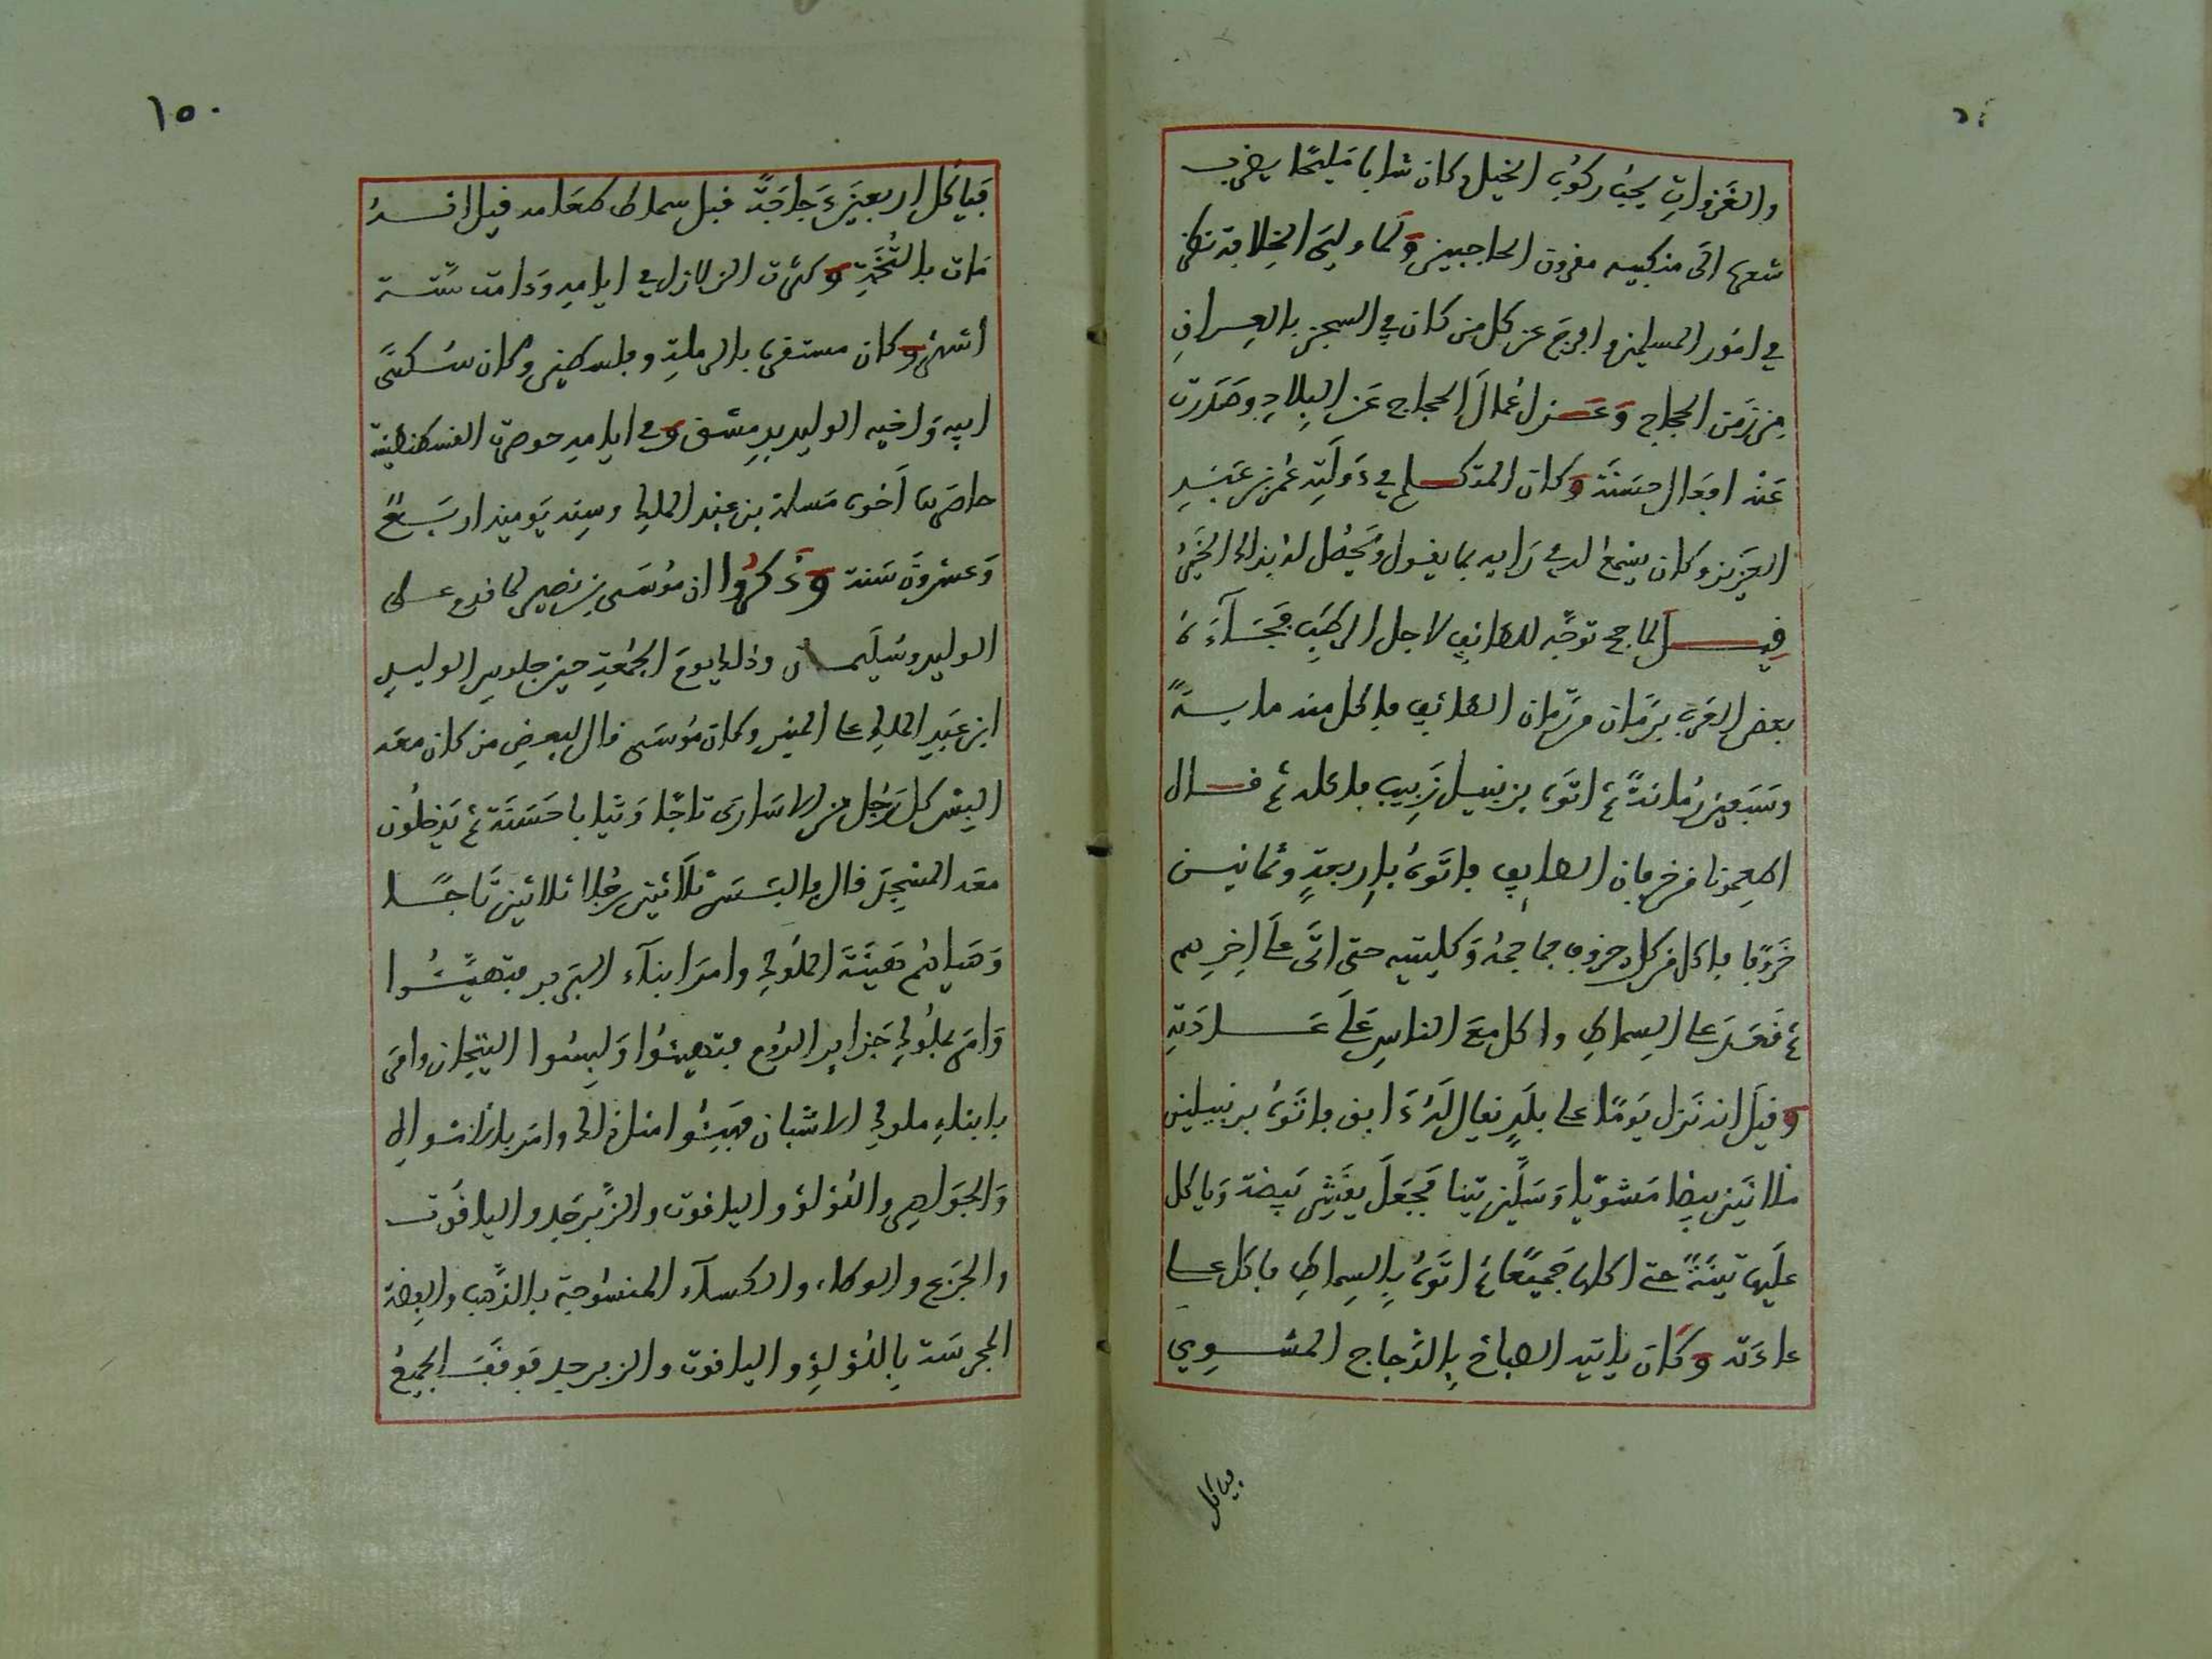 والغزوات يحب ركوب الخيل وكان شابا مليحا يضرب
شعره الى منكبيه مقرون الحاجبين ولما ولي الخلافة نظر
في امور المسلمين وافرج عن كل من كان في السجن بالعراق
من زمن الحجاج وعزل عمال الحجاج عن البلاد وصدرت
عنه افعال حسنة وكان المتكلم في دولته عمر بن عبد
العزيز وكان يسمع له في رايه بما يقول ويحصل له بذلك الخير
قيل لما حج توجه للطائف لاجل الرطب فجاءه
بعض العرب برمان من رمان الطائف فاكل منه ماية
وسبعين رمانة ثم اتوه بزنبيل زبيب فاكله ثم قال
اطعمونا من خرفان الطايف فاتوه باربعة وثمانين
خروفا فاكل من كل خروف جماجمه وكليتيه حتى اتى على اخرهم
ثم قعد على السماط واكل مع الناس على عادته
وقيل انه نزل يوما على بلد يقال له دابق فاتوه بزنبيلين
ملانين بيضا مشويا وسلين تينا فجعل يقشر بيضة وياكل
عليها تينة حتى اكلها جميعا ثم اتوه بالسماط فاكل على
عادته وكان ياتيه الطباخ بالدجاج المشوي
فياكل
١٥٠
فياكل اربعين دجاجة قبل سماط طعامه قيل انه
مات بالتخمة وكثرت الزلازل في ايامه ودامت ستة
اشهر وكان مستقره بالرملة وفلسطين وكان سكنى
ابيه واخيه الوليد بدمشق وفي ايامه حوصرت القسطنطينة
حاصرها اخوه مسلمة بن عبد الملك وسنه يوميذ اربع
وعشرون سنة وذكروا ان موسى بن نصير لما قدم على
الوليد وسليمان وذلك يوم الجمعة حين جلوس الوليد
ابن عبد الملك على المنبر وكان موسى قال لبعض من كان معه
البس كل رجل من الاسارى تاجا وثيابا حسنة ثم يدخلون
معه المسجد قال فالبس ثلاثين رجلا ثلاثين تاجا
وهياهم هيئة الملوك وامر ابناء البربر فتهيئوا
وامر بملوك جزاير الروم فتهيئوا ولبسوا التيجان وامر
بابناء ملوك الاشبان فهيئوا مثل ذلك وامر بالاموال
والجواهر واللؤلؤ والياقوت والزبرجد والياقوت
والجزع والوطاء والكساء المنسوجة بالذهب والفضة
الحرسة باللؤلؤ والياقوت والزبرجد فوقف الجميع